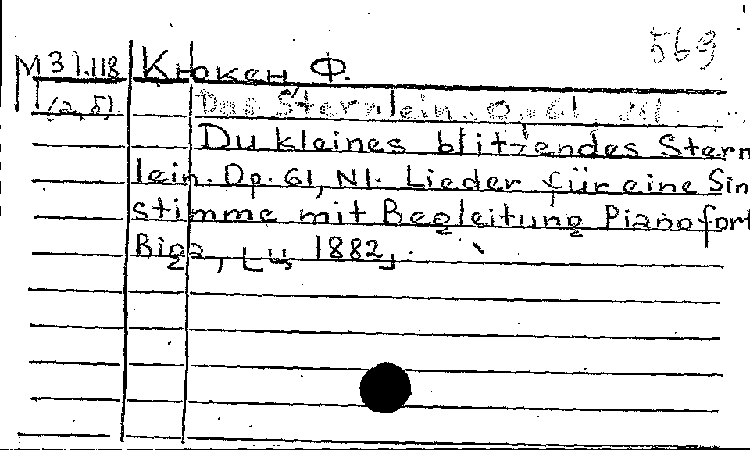 569
М 31.118 Кюкен Ф.
(2,5)
Das Sternlein. Op. 61, N1.
Du kleines blitzendes Stern
lein. Op. 61, N1. Lieder für eine Sin
stimme mit Begleitung Pianofort
Riga, [ц 1882].